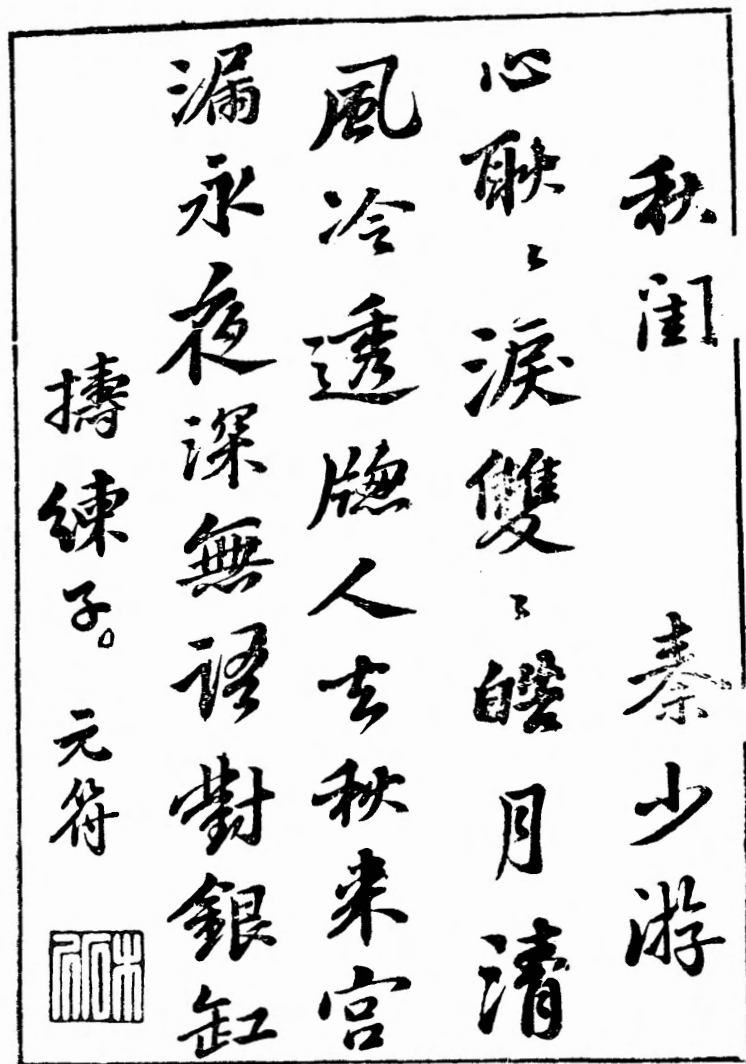 秋閨 秦少游
心耿〻淚雙〻皓月清
風冷透牕人去秋来宮
漏永夜深無語對銀缸
擣練子。 元符